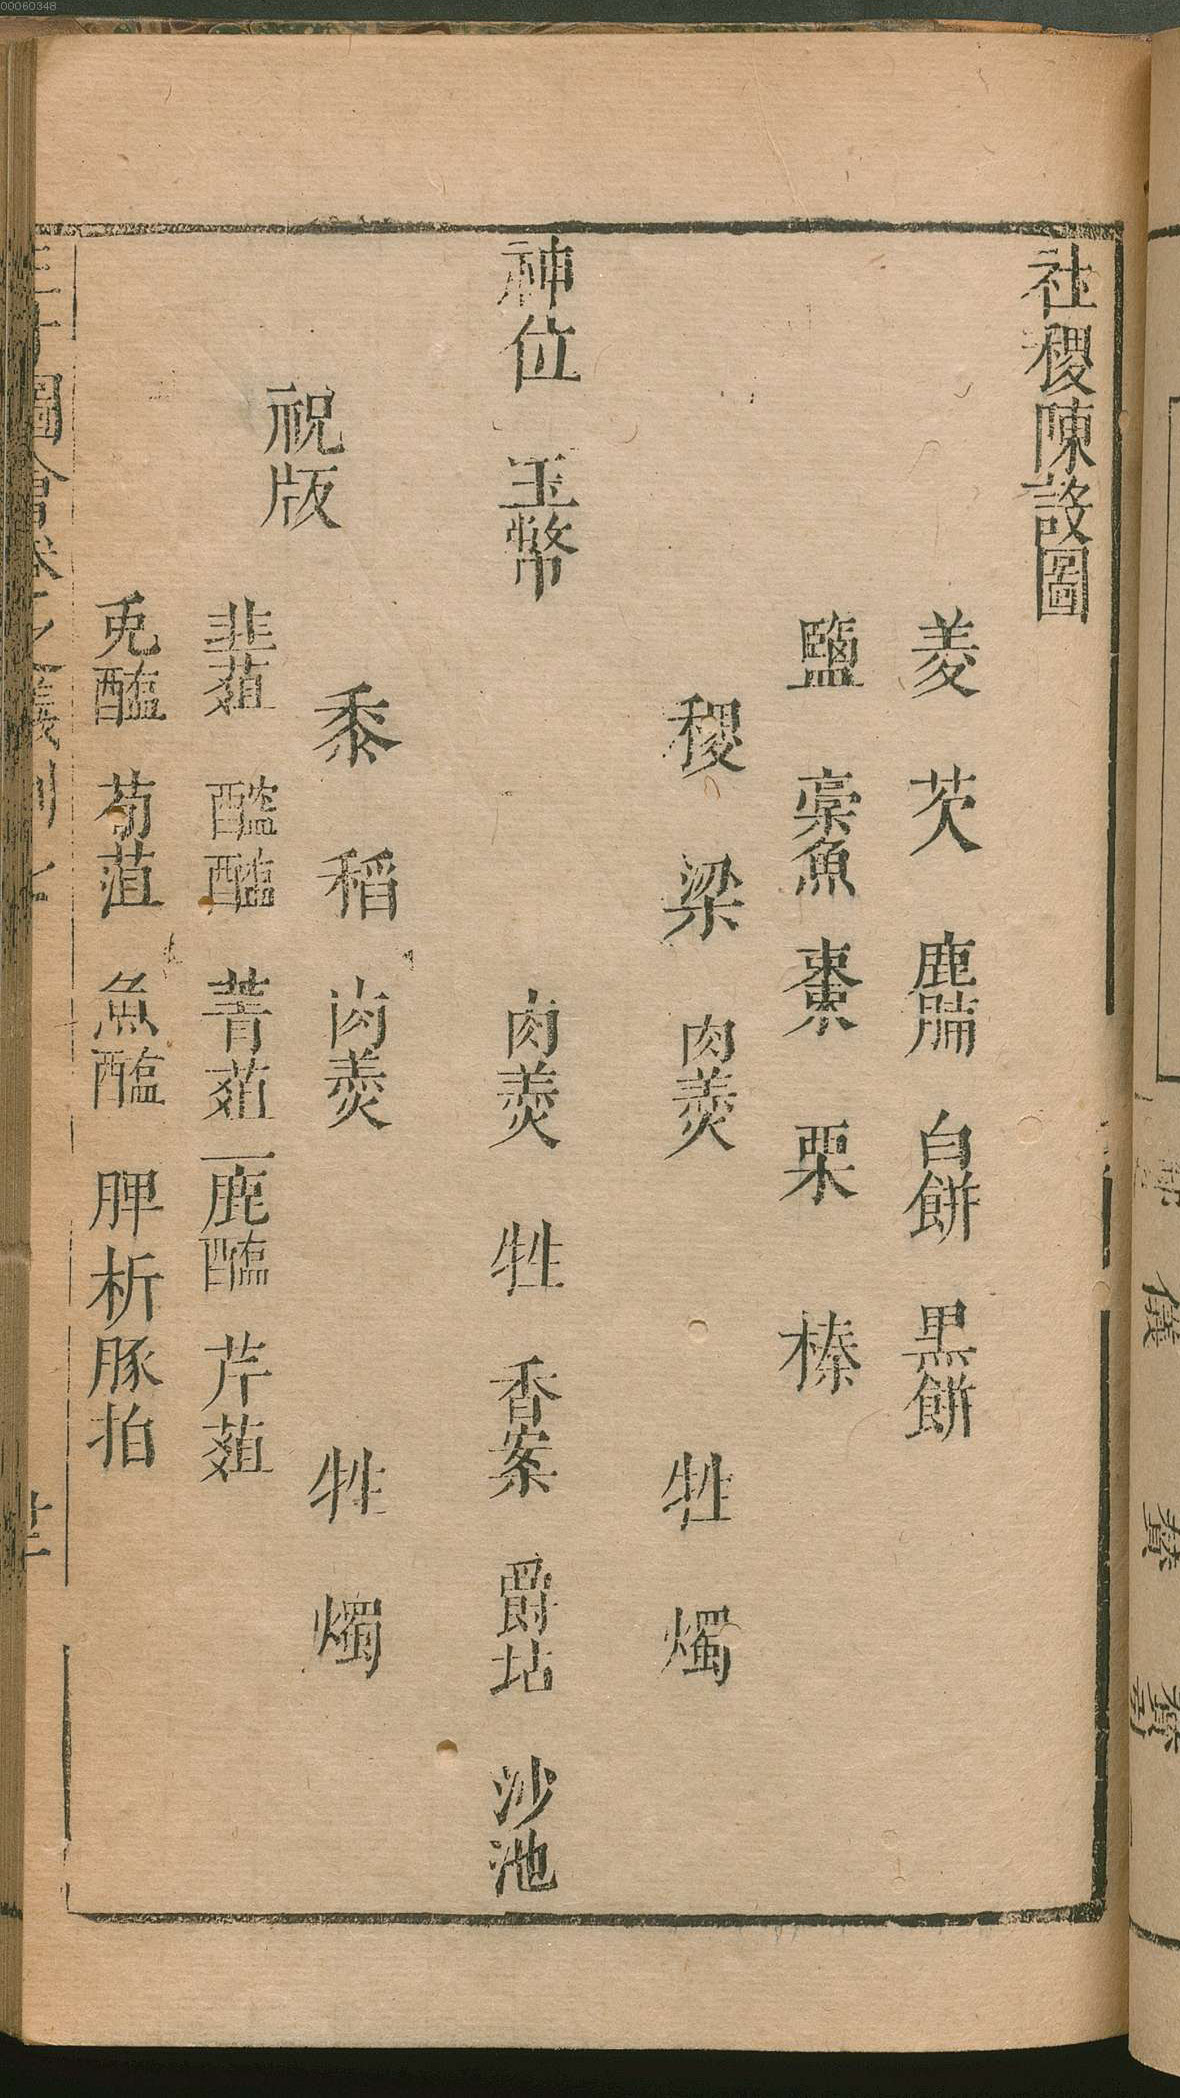 00060348
社稷陳設圖
菱 芡 鹿脯 白餅 黒餅
鹽 槀魚 棗 栗 榛
稷 粱 肉羮 牲 燭
神位 玉幣 肉羮 牲 香案 爵坫 沙池
祝版
黍 稻 肉羮 牲 燭
韭菹 醓醢 菁菹 鹿醢 芹菹
兎醢 筍菹 魚醢 脾析 豚拍
圖會卷之 儀制七